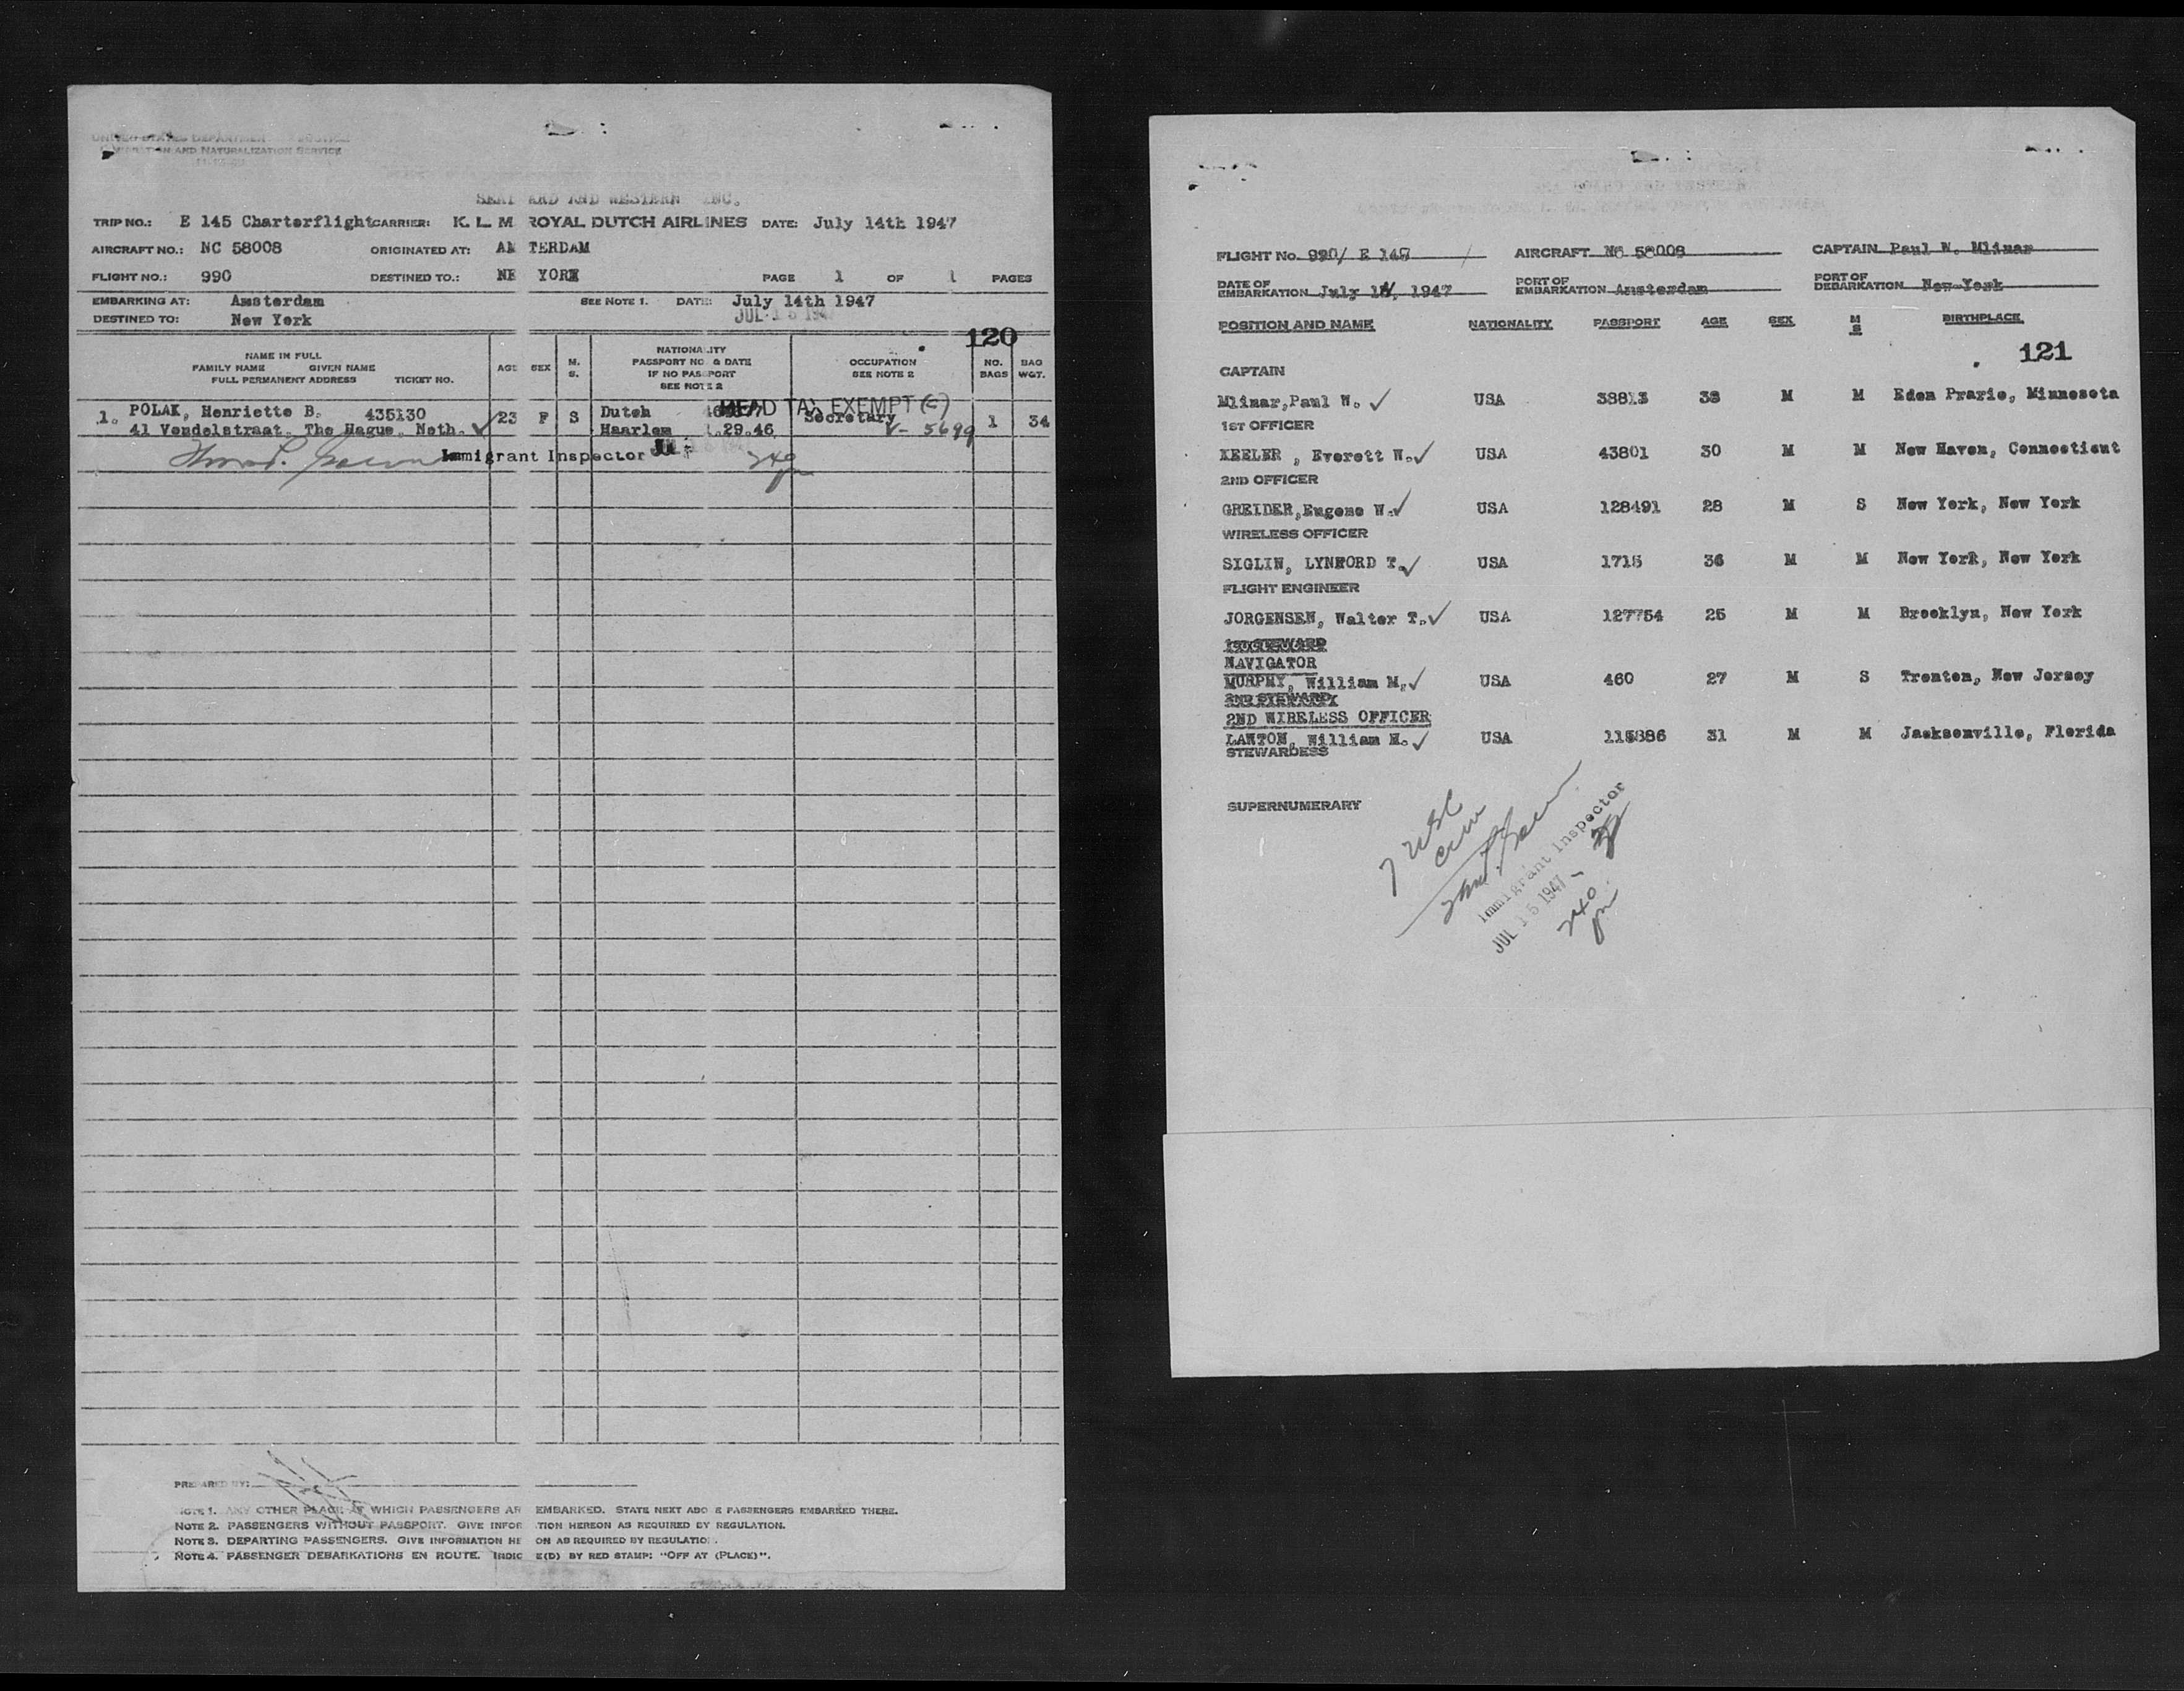 IMMIGRATION AND NATURALIZATION SERVICE
SEABOARD AND WESTERN INC.
TRIP NO.: E 145 Charterflight CARRIER: K. L. M. ROYAL DUTCH AIRLINES DATE: July 14th 1947
AIRCRAFT NO.: NC 58008 ORIGINATED AT: AMSTERDAM
FLIGHT NO.: 990 DESTINED TO.: NEW YORK PAGE 1 OF 1 PAGES
EMBARKING AT: Amsterdam SEE NOTE 1. DATE: July 14th 1947
DESTINED TO: New York JUL 15 1947
120
NAME IN FULL
FAMILY NAME GIVEN NAME
FULL PERMANENT ADDRESS TICKET NO.
AGE
SEX
M.
S.
NATIONALITY
PASSPORT NO. & DATE
IF NO PASSPORT
SEE NOTE 2
OCCUPATION
SEE NOTE 2
NO.
BAGS
BAG
WGT.
HEAD TAX EXEMPT (C)
1. POLAK, Henriette B. 435130 23 F S Dutch Secretary 1 34
41 Vendelstraat. The Hague. Neth. Haarlem .29.46 V- 5699
Immigrant Inspector JUL 240 pm
PREPARED BY:
NOTE 1. ANY OTHER PLACE AT WHICH PASSENGERS AR EMBANKED. STATE NEXT ABO E PASSENGERS EMBARKED THERE.
NOTE 2. PASSENGERS WITHOUT PASSPORT. GIVE INFOR TION HEREON AS REQUIRED BY REGULATION.
NOTE 3. DEPARTING PASSENGERS. GIVE INFORMATION HE ON AS REQUIRED BY REGULATIO .
NOTE 4. PASSENGER DEBARKATIONS EN ROUTE. INDIC E(D) BY RED STAMP: "OFF AT (PLACE)".
FLIGHT NO. 990/ E 145 AIRCRAFT NC 58008 CAPTAIN Paul W. Mlinar
DATE OF EMBARKATION July 14, 1947 PORT OF EMBARKATION Amsterdam PORT OF DEBARKATION New York
POSITION AND NAME NATIONALITY PASSPORT AGE SEX M S BIRTHPLACE
121
CAPTAIN
Mlinar,Paul W. USA 38813 38 M M Eden Prarie, Minnesota
1ST OFFICER
KEELER , Everett W. USA 43801 30 M M New Haven, Connecticut
2ND OFFICER
GREIDER,Eugene W. USA 128491 28 M S New York, New York
WIRELESS OFFICER
SIGLIN, LYNFORD T. USA 1715 36 M M New York, New York
FLIGHT ENGINEER
JORGENSEN, Walter T. USA 127754 25 M M Brooklyn, New York
1ST STEWARD
NAVIGATOR
MURPHY, William M. USA 460 27 M S Trenton, New Jersey
2ND STEWARD
2ND WIRELESS OFFICER
LAWTON, William H. USA 115886 31 M M Jacksonville, Florida
STEWARDESS
SUPERNUMERARY
7 USC
crew
Immigrant Inspector
JUL 15 1947
240
pm